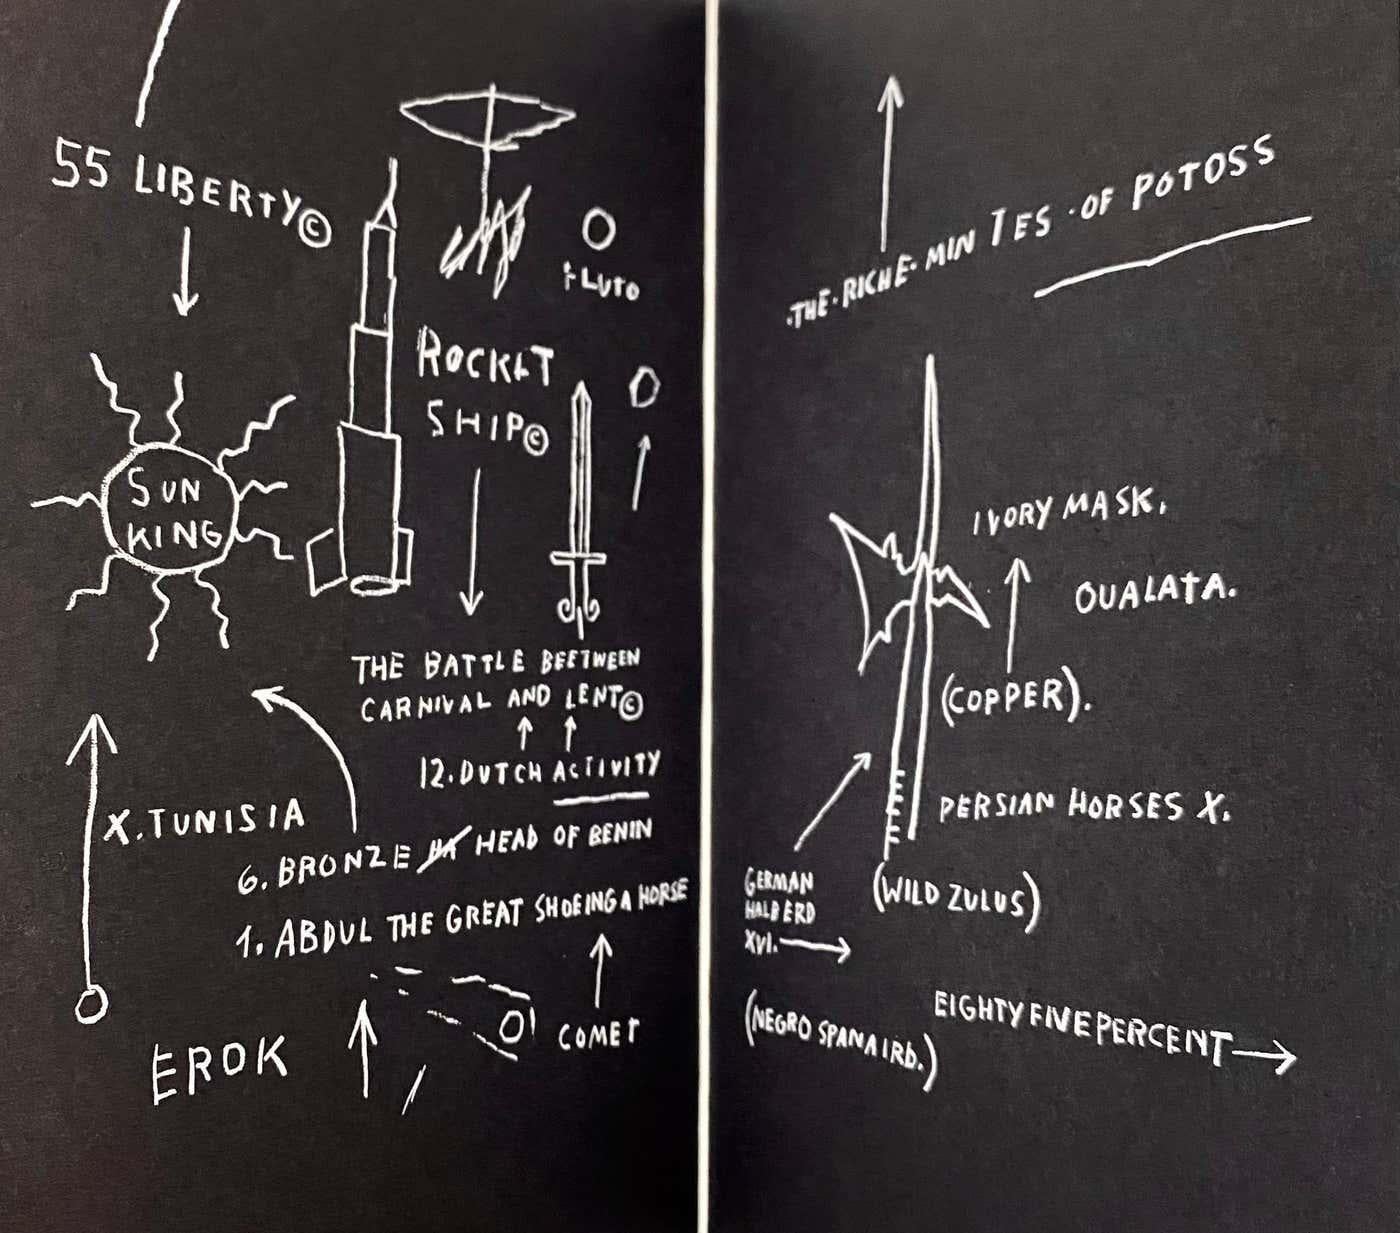 55 LIBERTY©
PLUTO
ROCKET
SHIP©
SUN
KING
THE BATTLE BEETWEEN
CARNIVAL AND LENT©
12. DUTCH ACTIVITY
X. TUNISIA
6. BRONZE HEAD OF BENIN
1. ABDUL THE GREAT SHOEING A HORSE
COMET
EROK
·THE·RICHE·MIN TES·OF POTOSS
IVORY MASK.
OUALATA.
(COPPER).
PERSIAN HORSES X.
GERMAN
HALBERD
XVI.
(WILD ZULUS)
EIGHTY FIVE PERCENT
(NEGRO SPANAIRD.)